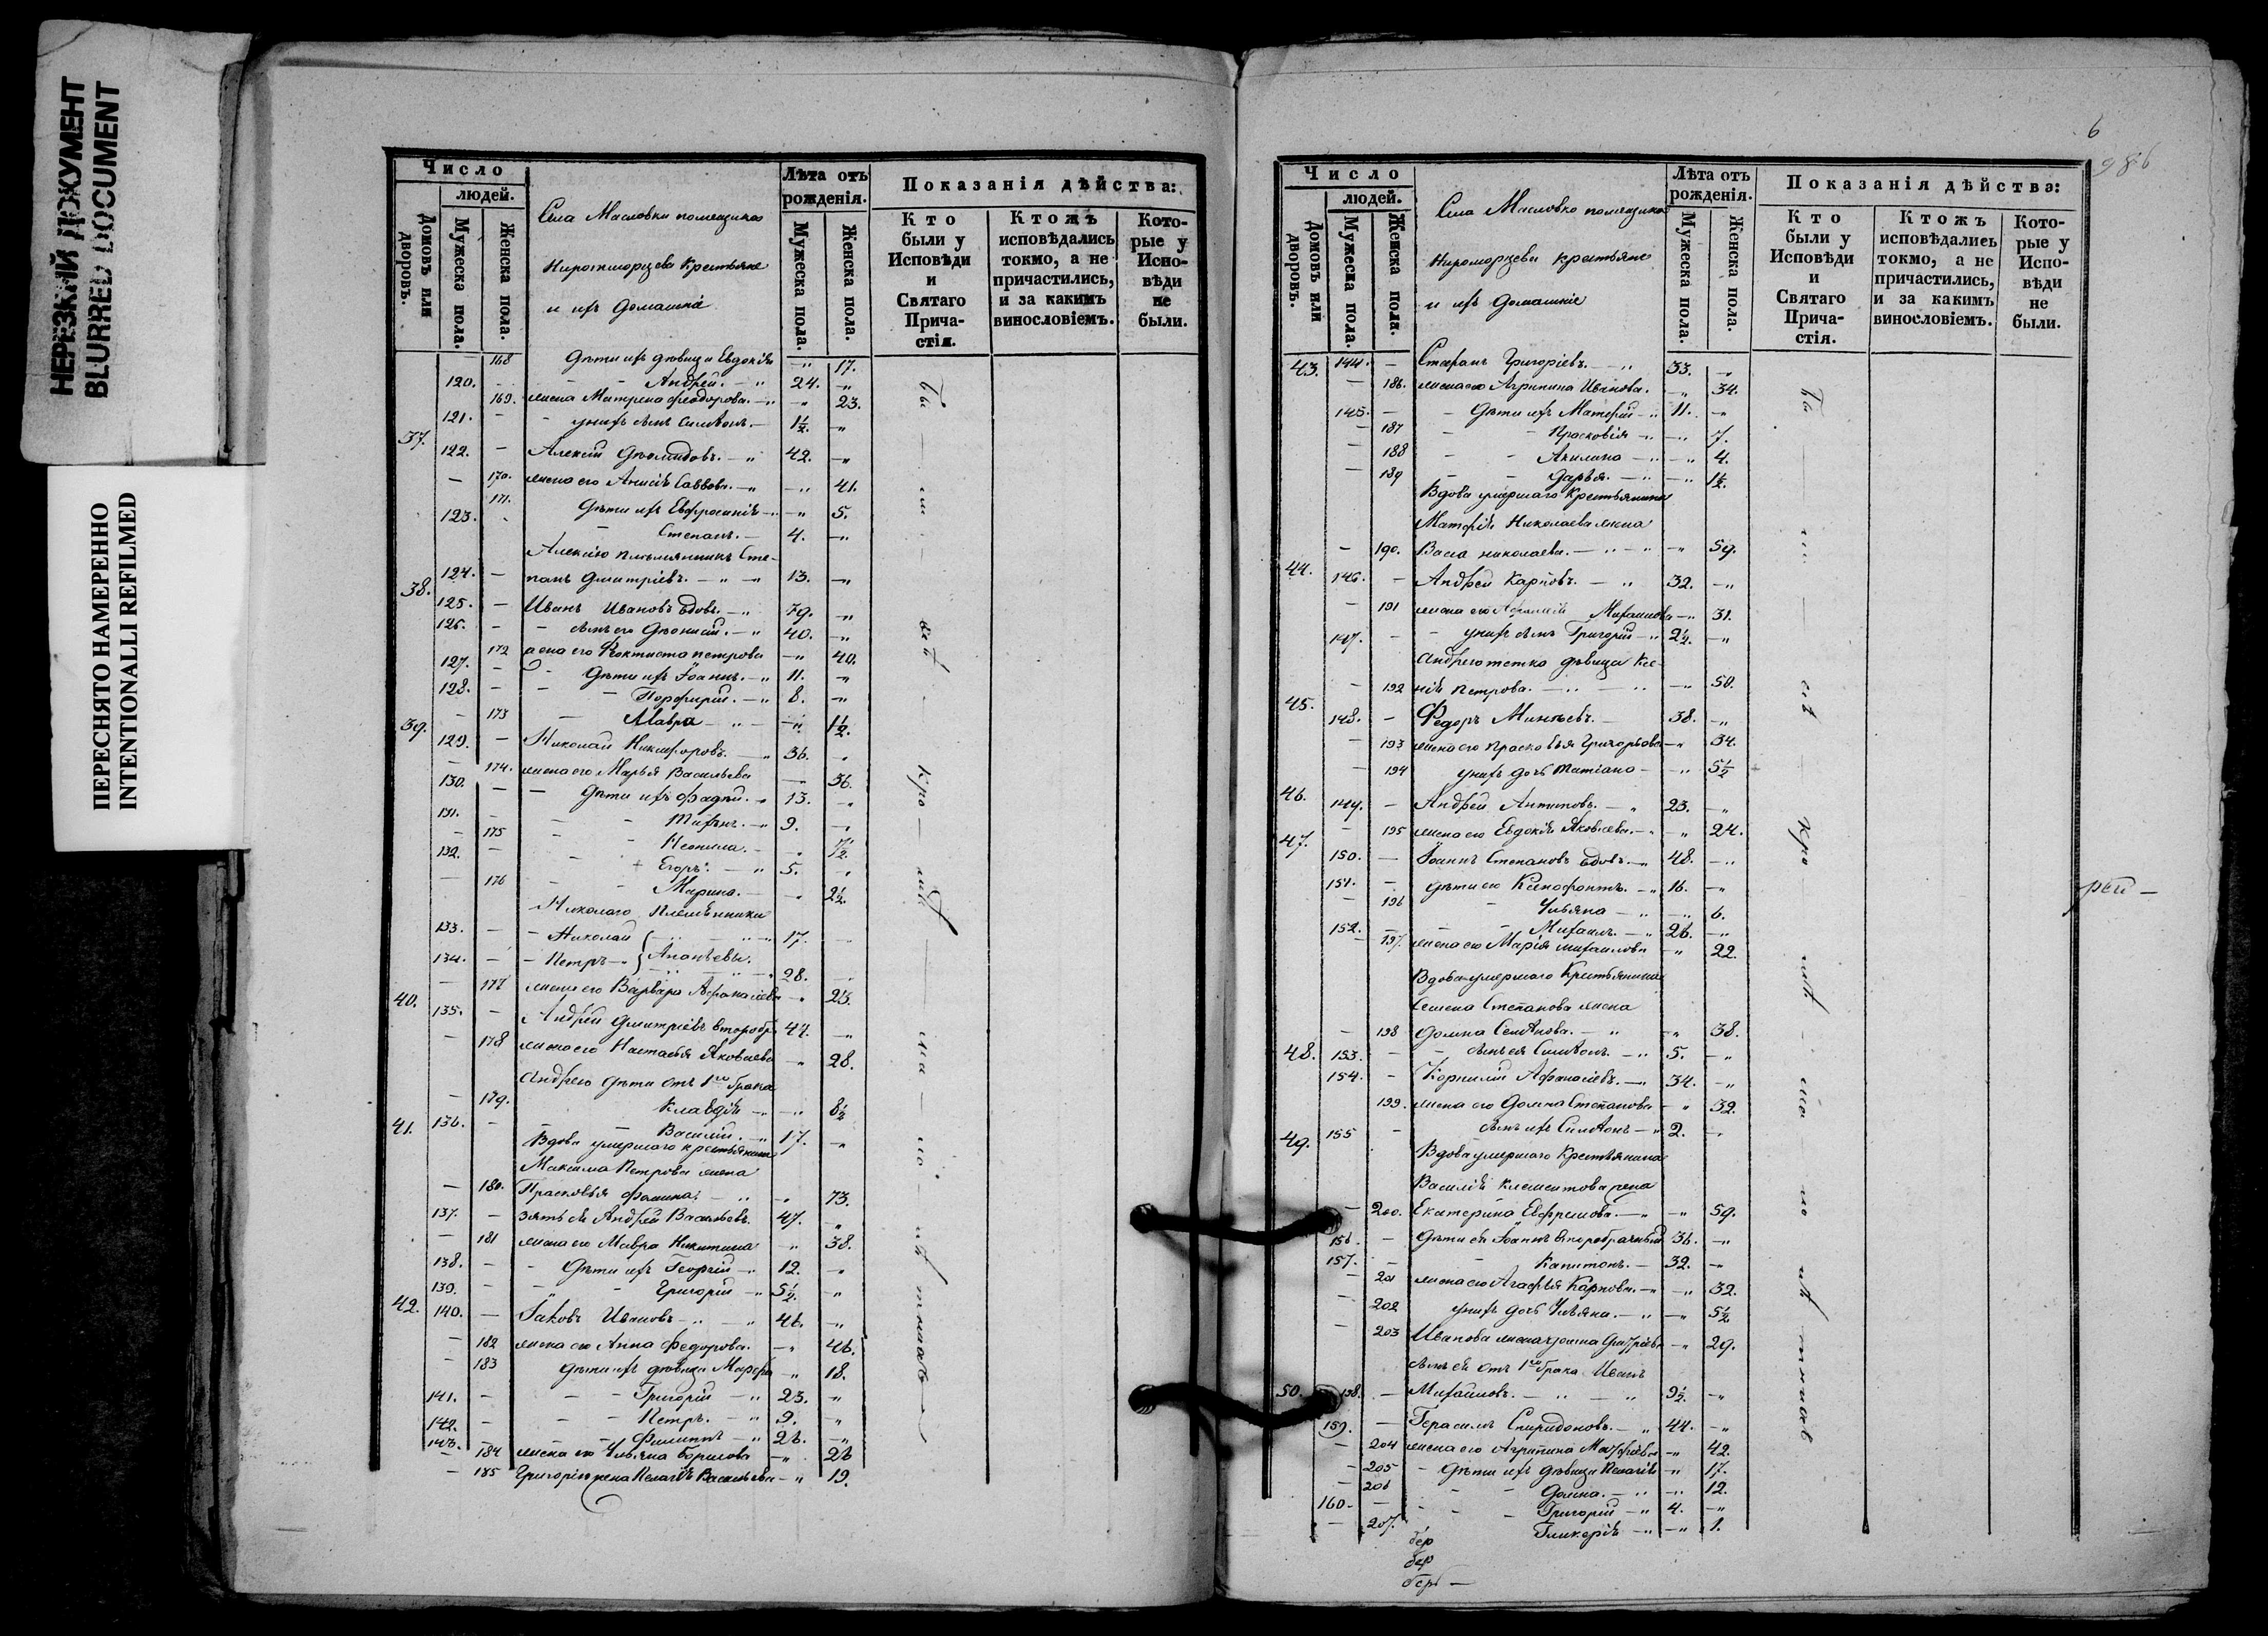 НЕРЕЗКИЙ ДОКУМЕНТ
BLURRED DOCUMENT
ПЕРЕСНЯТО НАМЕРЕННО
INTENTIONALLI REFILMED
Число
людей.
Домовъ или дворовъ.
Мужеска пола.
Женска пола.
Села Масловки помещика
крестьяне
и ихъ домашніе
Лѣта отъ рожденія.
Мужеска пола.
Женска пола.
Показанія дѣйства:
Кто были у Исповѣди и Святаго Прича-стія.
Ктожъ исповѣдались токмо, а не причастились, и за какимъ винословіемъ.
Кото-рые у Испо-вѣди не были.
168 Дѣти ихъ дѣвица Евдокія -" 17.
120. - Андрей. -" 24. -"
169. жена Матрена Федорова. -" 23.
121. - у нихъ сынъ Симеонъ. - 1½. -"
37. 122. - Алексей Діомидовъ. -" 42. -"
- 170. жена его Анисія Саввова. -" -" 41.
171. Дѣти ихъ Евфросинія -" 5.
123. - Степанъ. - 4. -"
Алексею племянникъ Сте-
124. - панъ Дмитріевъ. -" -" 13. -"
38. 125. - Иванъ Ивановъ вдовъ. -" 79. -"
126. - - сынъ его Діонисій. -" 40. -"
172 жена его Феоктиста Петрова -" 40.
127. - Дѣти ихъ Іоаннъ. -" 11. -"
128. - - Порфирій. -" 8. -"
- 173 - Мавра -" - -" 1½.
39. 129. - Николай Никифоровъ. -" 36. -"
- 174. жена его Марья Васильева - 36.
130. - - Дѣти ихъ Фадѣй. -" 13. -"
131. - - - Тифонъ. -" 9. -"
- 175 - - Неонила. - -"
132. - - Егоръ. -" 5. -"
- 176 - - Марина. - -" 2½
Николаю племянники
133. - - Николай -" 17. -"
134. - - Петръ -" Ананьевы. -" 28. -"
- 177 жена его Варвара Афанасіева -" 25.
40. 135. - Андрей Дмитріевъ второбр. 44. -"
- 178 жена его Настасья Яковлева -" 28.
Андрею дѣти отъ 1го брака
- 179. Клавдія -" -" 8½
136. - - Василій. -" 17. -"
41. Вдова умершаго крестьянина
Максима Петрова жена
- 180. Прасковья Фомина -" -" 73.
137. - зять ея Андрей Васильевъ. 47. -"
- 181 жена его Мавра Никитина -" 38.
138. - - Дѣти ихъ Георгій -" 12. -"
139. - - - Григорій -" 5½. -"
42. 140. - Іаковъ Ивановъ -" -" 46. -"
- 182 жена его Анна Федорова. -" 46.
- 183 Дѣти ихъ дѣвица Марфа -" 18.
141. - - - Григорій -" 23. -"
142. - - - Петръ. -" 9. -"
143. - - - Филиппъ -" 26. -"
- 184 жена его Ульяна Борисова -" 26
- 185 Григорію жена Пелагія Васильева -" 19.
6
Число
людей.
Домовъ или дворовъ.
Мужеска пола.
Женска пола.
Села Масловки помещика
крестьяне
и ихъ домашніе
Лѣта отъ рожденія.
Мужеска пола.
Женска пола.
Показанія дѣйства:
Кто были у Исповѣди и Святаго Прича-стія.
Ктожъ исповѣдались токмо, а не причастились, и за какимъ винословіемъ.
Кото-рые у Испо-вѣди не были.
43. 144. - Стефанъ Григоріевъ. -" 33. -"
- 186. жена его Агрипина Иванова. -" 34.
145. - - Дѣти ихъ Матфей -" 11. -"
- 187 - - Прасковія -" -" 7.
- 188 - - Акилина -" -" 4.
- 189 - - Дарья. -" -" 1½.
Вдова умершаго крестьянина
Матфія Николаева жена
- 190. Васса Николаева. -" -" -" 59.
44. 146. - Андрей Карповъ. -" 32. -"
- 191 жена его Михаилова -" 31.
147. - - у нихъ сынъ Григорій -" 2½. -"
Андрею тетка дѣвица Ксе-
- 192 нія Петрова. -" -" -" 50.
45. 148. - Федоръ Минѣевъ. - 38. -"
- 193 жена его Прасковья Григорьева -" 34.
- 194 у нихъ дочь Татіана - -" 5½
46. 149. - Андрей Антиповъ. -" 23. -"
- 195 жена его Евдокія Яковлева. -" -" 24.
47. 150. - Іоаннъ Степановъ вдовъ. -" 48. -"
151. - дѣти его Ксенофонтъ. -" 16. -"
- 196 - Ульяна -" -" 6.
152. - - Михаилъ. -" 26. -"
- 197. жена его Марія Михаилова -" 22.
Вдова умершаго крестьянина
Семена Степанова жена
- 198 Домна Семенова. -" -" 38.
153. - - сынъ ея Симеонъ. -" 5. -"
48. 154. - Корнилій Афанасіевъ. -" 34. -"
199. жена его Домна Степанова -" 32.
155 - сынъ ихъ Симеонъ -" 2. -"
49. Вдова умершаго крестьянина
Василія Климентова жена
- 200. Екатерина Ефремова. -" -" 59.
156. - Дѣти ея Іоаннъ второбрачный 36. -"
157. - - Капитонъ. - 32. -"
- 201 жена его Агафья Карпова. -" -" 32.
- 202 у нихъ дочь Ульяна. -" -" 5½
- 203 Иванова жена Домна -" 29.
сынъ ея отъ 1го брака Иванъ
158. - Михаиловъ. -" -" 9½. -"
50. 159. - Герасимъ Спиридоновъ. -" 44. -"
- 204 жена его Агрипина -" 42.
- 205 - Дѣти ихъ дѣвица Пелагія -" 17.
- 206 - - Домна. -" -" 12.
160. - - - Григорій -" 4. -"
- 207. Гликерія -" -" 1.